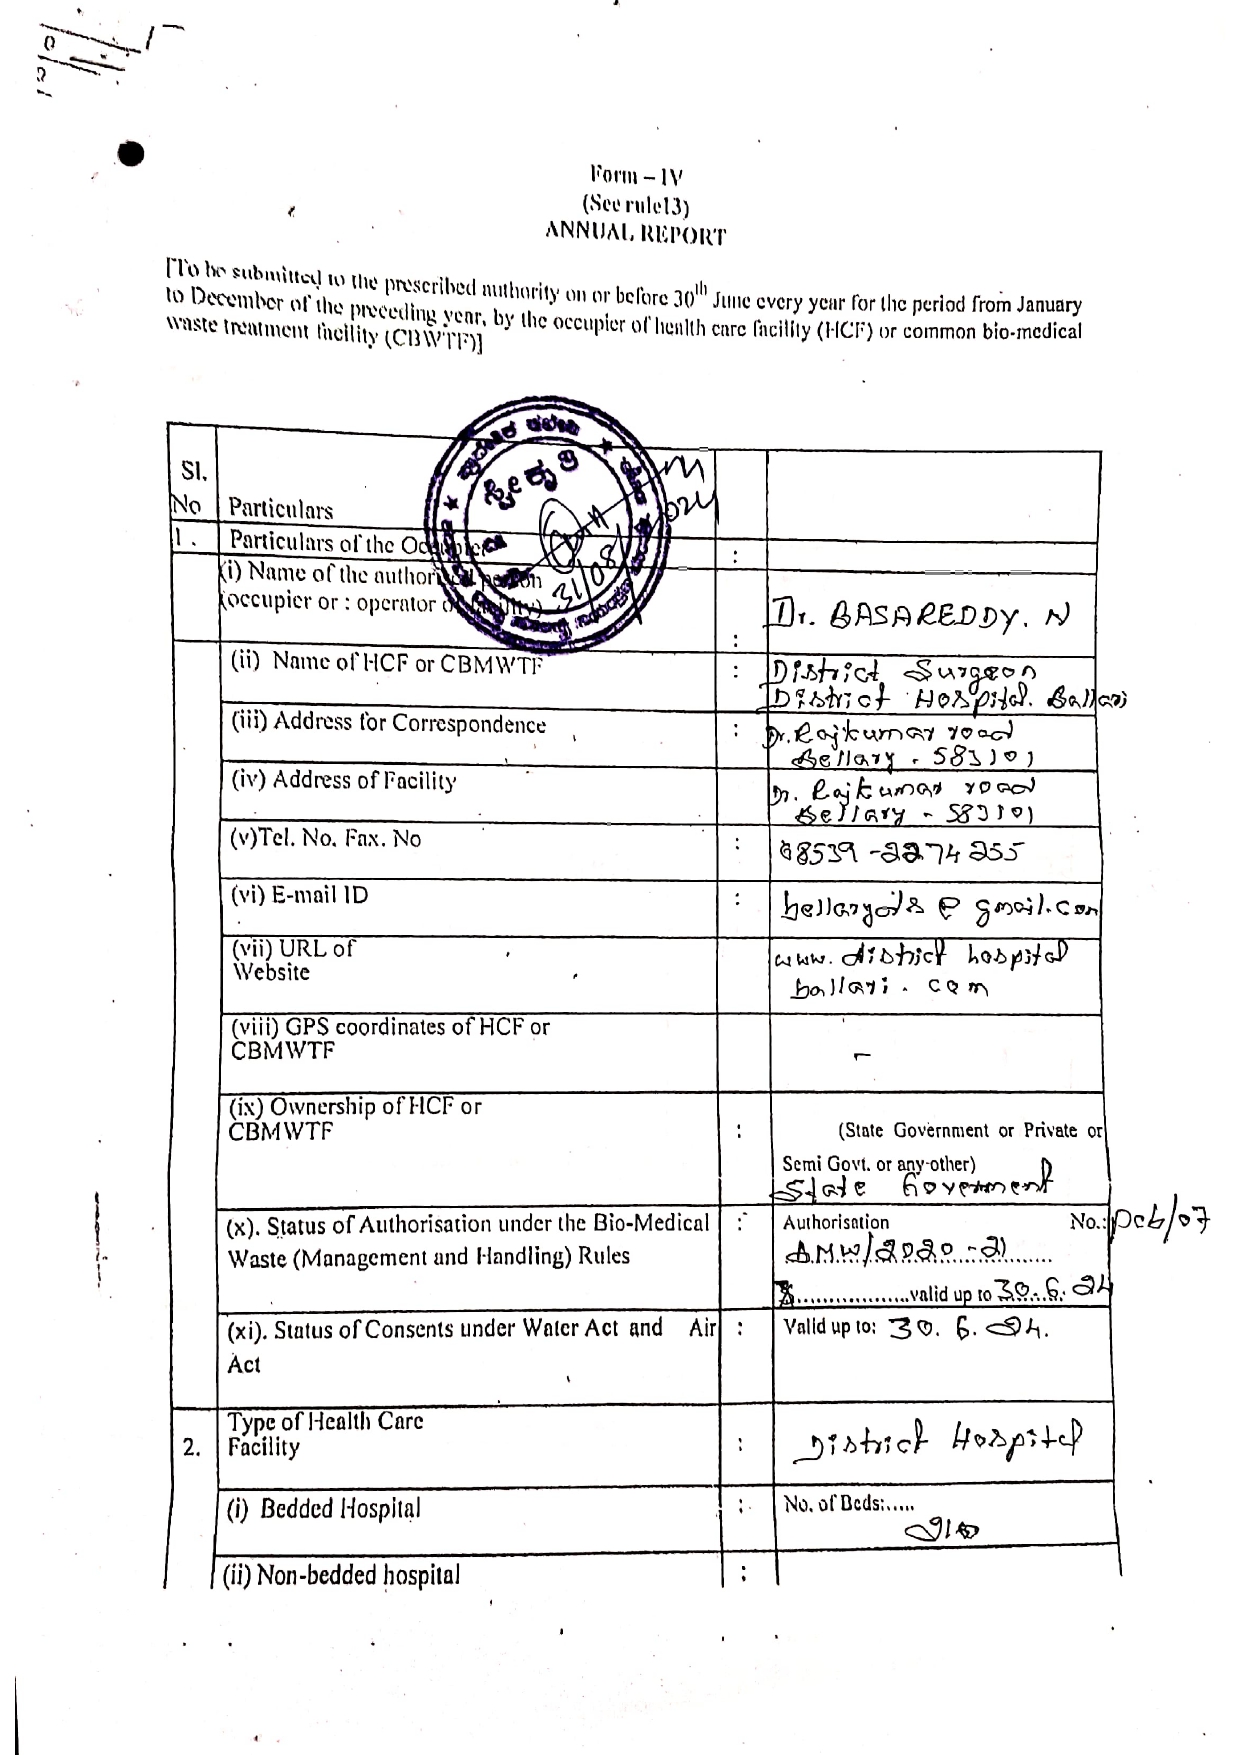 Form – IV
(See rule13)
ANNUAL REPORT
[To be submitted to the prescribed authority on or before 30th June every year for the period from January
to December of the preceding year, by the occupier of health care facility (HCF) or common bio-medical
waste treatment facility (CBWTF)]
Sl.
No Particulars
ಸ್ವೀಕೃತಿ
31/08/
1. Particulars of the Occupier :
(i) Name of the authorised person
(occupier or : operator of facility) : Dr. BASAREDDY. N
(ii) Name of HCF or CBMWTF : District Surgeon
District Hospital. Ballari
(iii) Address for Correspondence : Dr. Rajkumar road
Bellary - 583101
(iv) Address of Facility Dr. Rajkumar road
Bellary - 583101
(v)Tel. No. Fax. No : 08539-2274255
(vi) E-mail ID : bellaryds@gmail.com
(vii) URL of
Website www.district hospital
ballari.com
(viii) GPS coordinates of HCF or
CBMWTF -
(ix) Ownership of HCF or
CBMWTF : (State Government or Private or
Semi Govt. or any-other)
State Government
(x). Status of Authorisation under the Bio-Medical : Authorisation No.: pcb/07
Waste (Management and Handling) Rules BMW/2020-21
..................valid up to 30.6.24
(xi). Status of Consents under Water Act and Air : Valid up to: 30.6.24.
Act
Type of Health Care
2. Facility : District Hospital
(i) Bedded Hospital : No. of Beds:.....
210
(ii) Non-bedded hospital :